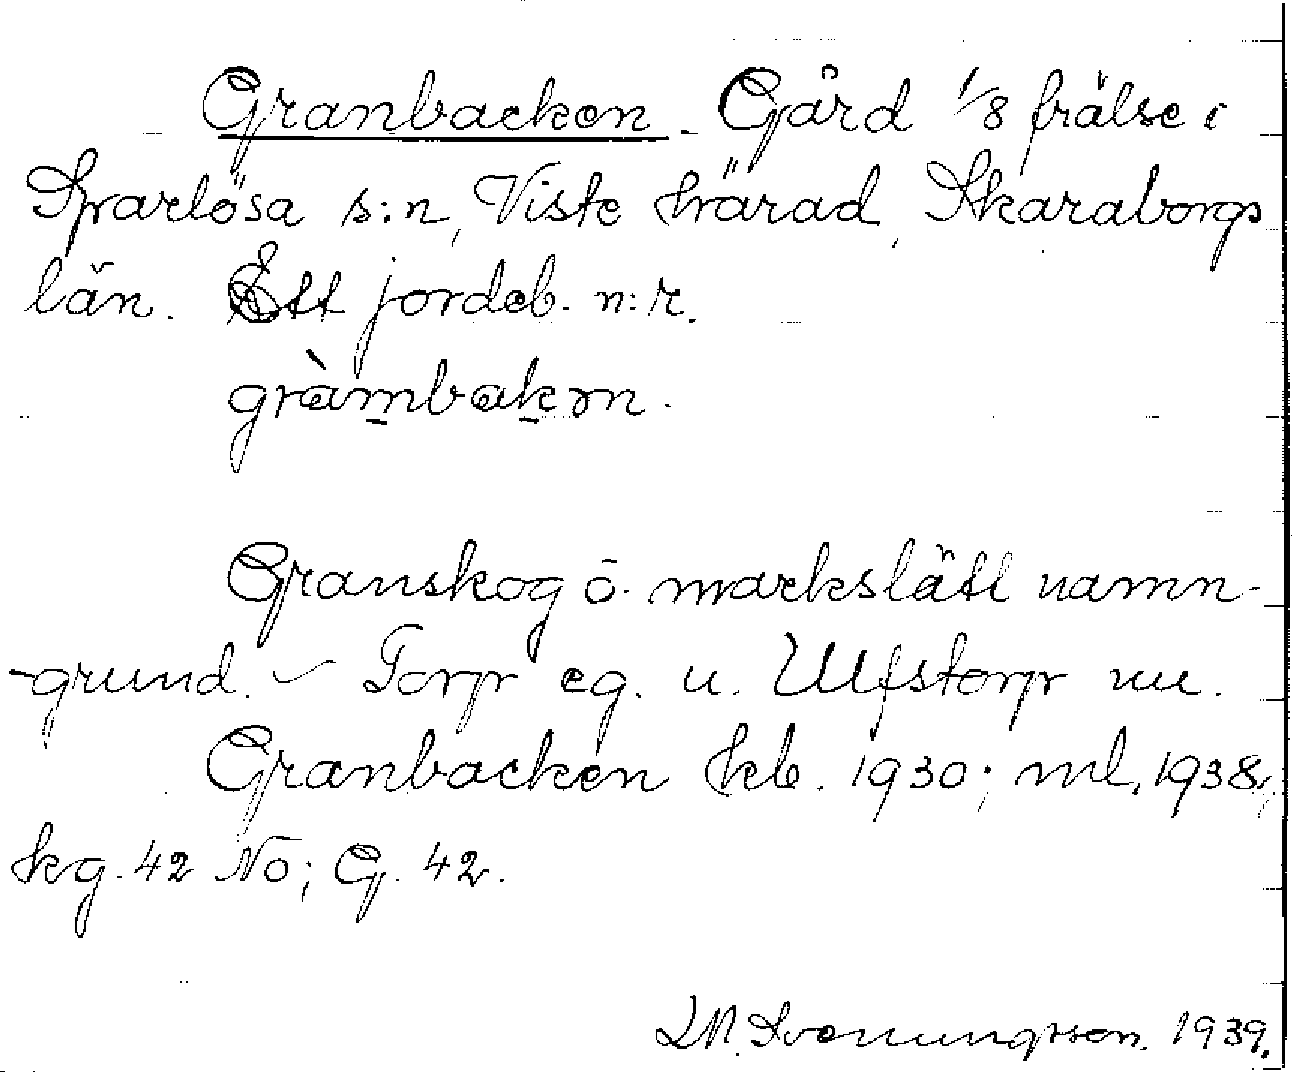 Granbacken. Gård 1/8 frälse i
Sparlösa s:n, Viste härad, Skaraborgs
län. Ett jordeb. n:r.
gràmbakən.
Granskog o. markslätt namn-
-grund. – Torp eg. u. Ulfstorp nu.
Granbacken hkb. 1930; ml. 1938;
kg. 42 No; G. 42.
Svenungsson. 1939.